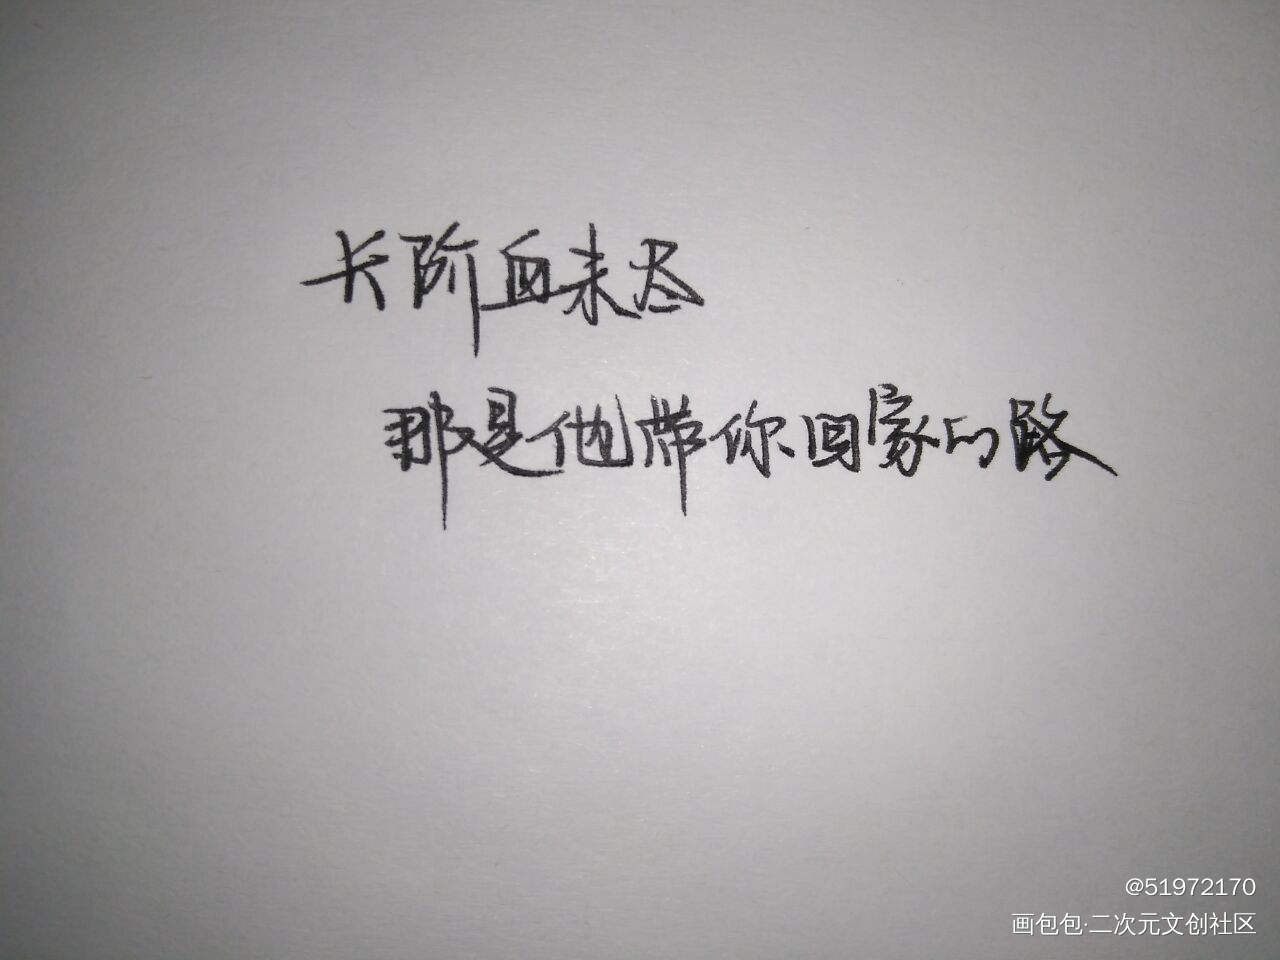 长阶血未尽
那是他带你回家的路
@51972170
画包包·二次元文创社区